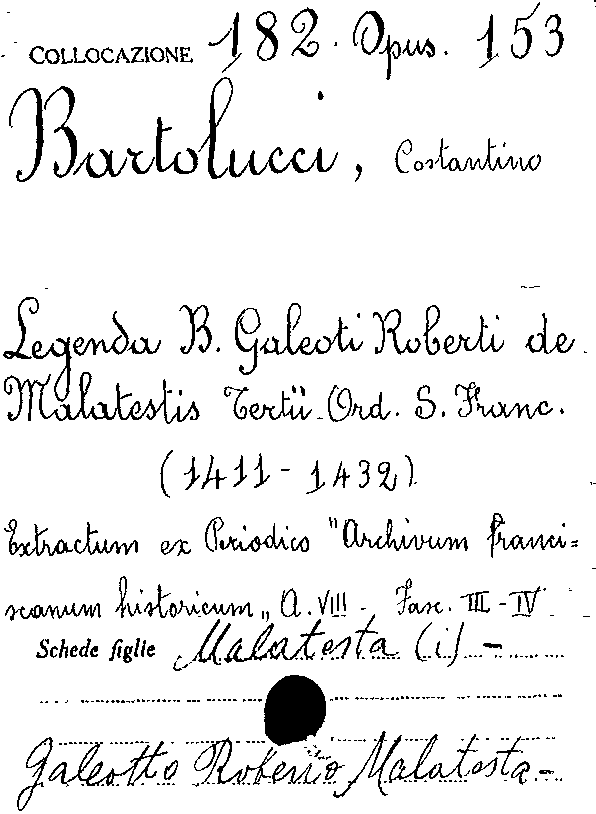 COLLOCAZIONE 182. Opus. 153
Bartolucci, Costantino
Legenda B. Galeoti Roberti de
Malatestis Tertii Ord. S. Franc.
(1411-1432)
Extractum ex Periodico "Archivum franci=
scanum historicum„ A. VIII - Fasc. III-IV
Schede figlie Malatesta (i) -
Galeotto Roberto Malatesta -